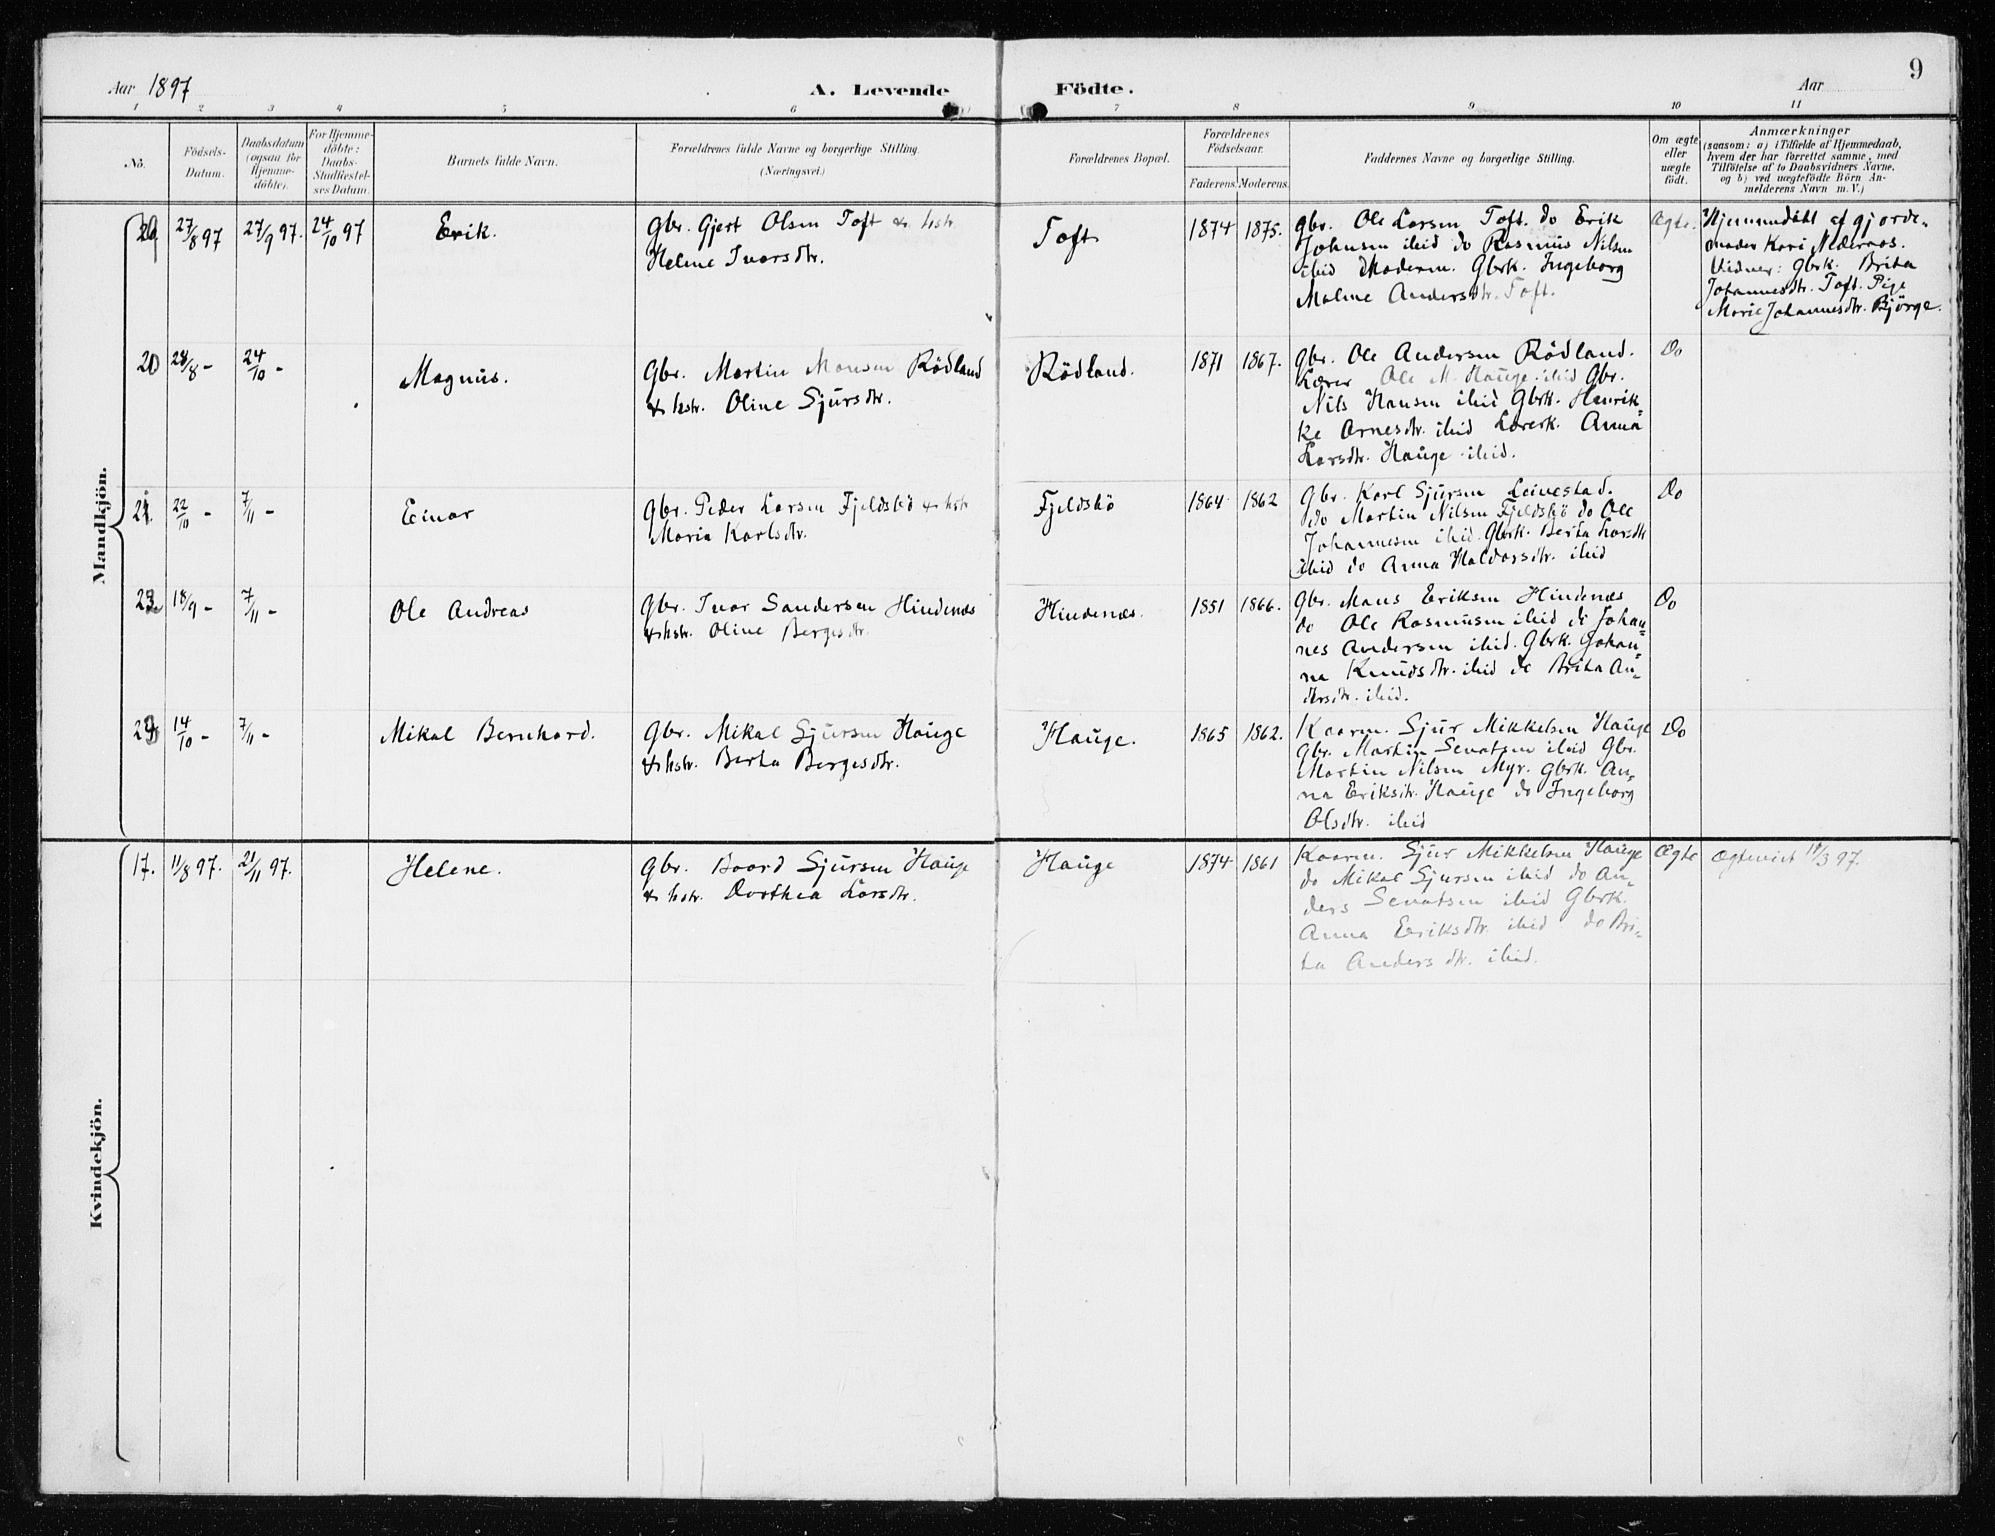 9
Aar 1897
A. Levende
Födte.
Aar
1 2 3 4 5 6 7 8 9 10 11
No.
Födsels-
Datum.
Daabsdatum
(ogsaa for
Hjemme-
döbte).
For Hjemme-
döbte:
Daabs-
Stadfæstel-
ses Datum.
Barnets fulde Navn.
Forældrenes fulde Navne og borgerlige Stilling.
(Næringsvei.)
Forældrenes Bopæl.
Forældrenes
Födselsaar.
Faderens. Moderens.
Faddernes Navne og borgerlige Stilling.
Om ægte
eller
uægte
født.
Anmærkninger
(saasom: a) i Tilfælde af Hjemmedaab,
hvem der har forrettet samme, med
Tilföielse af to Daabsvidners Navne.
og b) ved uægtefödte Börn An-
melderens Navn m. V.)
Mandkjön.
27/8 97
27/9 97.
24/10 97
Erik.
Gbr. Gjert Olsen Toft & hstr.
Helene Ivarsdtr.
Toft
1874 1875.
Gbr. Ole Larsen Toft. do Erik
Johnsen ibid do Rasmus Nilsen
ibid Moderen. Gbrk. Ingeborg
Malene Andersdtr. Toft.
Ægte.
Hjemmedöbt af gjorde-
moder Kari Nederaas.
Vidner: Gbrk. Brita
Johannesdtr. Toft. Pige
Marie Johannesdtr. Björge.
20
28/8 -
24/10 -
Magnus.
Gbr. Martin Monsen Rödland
& hstr. Oline Sjursdtr.
Rödland.
1871 1867.
Gbr. Ole Andersen Rödland.
Lærer Ole M. Hauge ibid Gbr.
Nils Hansen ibid Gbrk. Henrik=
ke Arnesdtr. ibid Lærerk. Anna
Larsdtr. Hauge ibid.
Do
21.
22/10 -
7/11 -
Einar
Gbr. Peder Larsen Fjeldsbö & hstr
Maria Karlsdtr.
Fjeldsbö
1864 1862
Gbr. Karl Sjursen Leivestad.
do Martin Nilsen Fjeldsbö do Ole
Johannesen ibid. Gbrk. Berta Larsdtr
ibid do Anna Haldorsdtr. ibid
Do
18/9 -
7/11 -
Ole Andreas
Gbr. Ivar Sandersen Hindenæs
& hstr. Oline Bergesdtr.
Hindenæs.
1851 1866.
Gbr. Mons Eriksen Hindenæs
do Ole Rasmusen ibid do Johan=
nes Andersen ibid. Gbrk. Johan=
na Knudsdtr. ibid do Brita An=
dersdtr. ibid.
Do
14/10 -
7/11 -
Mikal Bernhard.
Gbr. Mikal Sjursen Hauge
& hstr. Berta Bergesdtr.
Hauge.
1865 1862.
Kaarm. Sjur Mikkelsen Hauge
Gbr. Martin Senatsen ibid Gbr.
Martin Nilsen Myr. Gbrk. An=
na Eriksdtr. Hauge do Ingeborg
Olsdtr. ibid
Do
Kvindekjön.
17.
11/8 97.
21/11 97.
Helene.
Gbr. Baard Sjursen Hauge
& hstr. Dorthea Larsdtr.
Hauge
1874 1861
Kaarm. Sjur Mikkelsen Hauge
do Mikal Sjursen ibid do An=
ders Senatsen ibid Gbrk.
Anna Eriksdtr. ibid do Bri=
ta Andersdtr. ibid.
Ægte
Ægteviet 97.